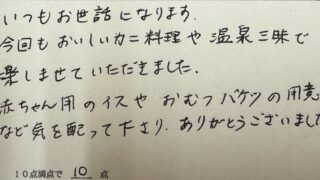 いつもお世話になります.
今回もおいしいカニ料理や温泉三昧で
楽しませていただきました.
赤ちゃん用のイスや おむつバケツの用意
など気を配って下さり、ありがとうございました
10点満点で 10 点